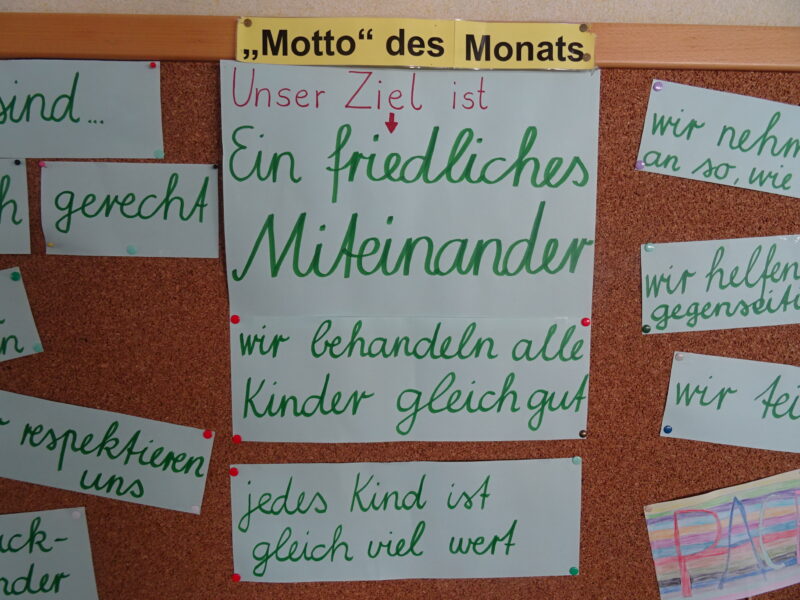 „Motto“ des Monats
Unser Ziel ist
Ein friedliches
Miteinander
wir behandeln alle
Kinder gleich gut
jedes Kind ist
gleich viel wert
sind...
gerecht
respektieren
uns
wir nehm
an so, wie
wir helfen
gegenseiti
wir tei